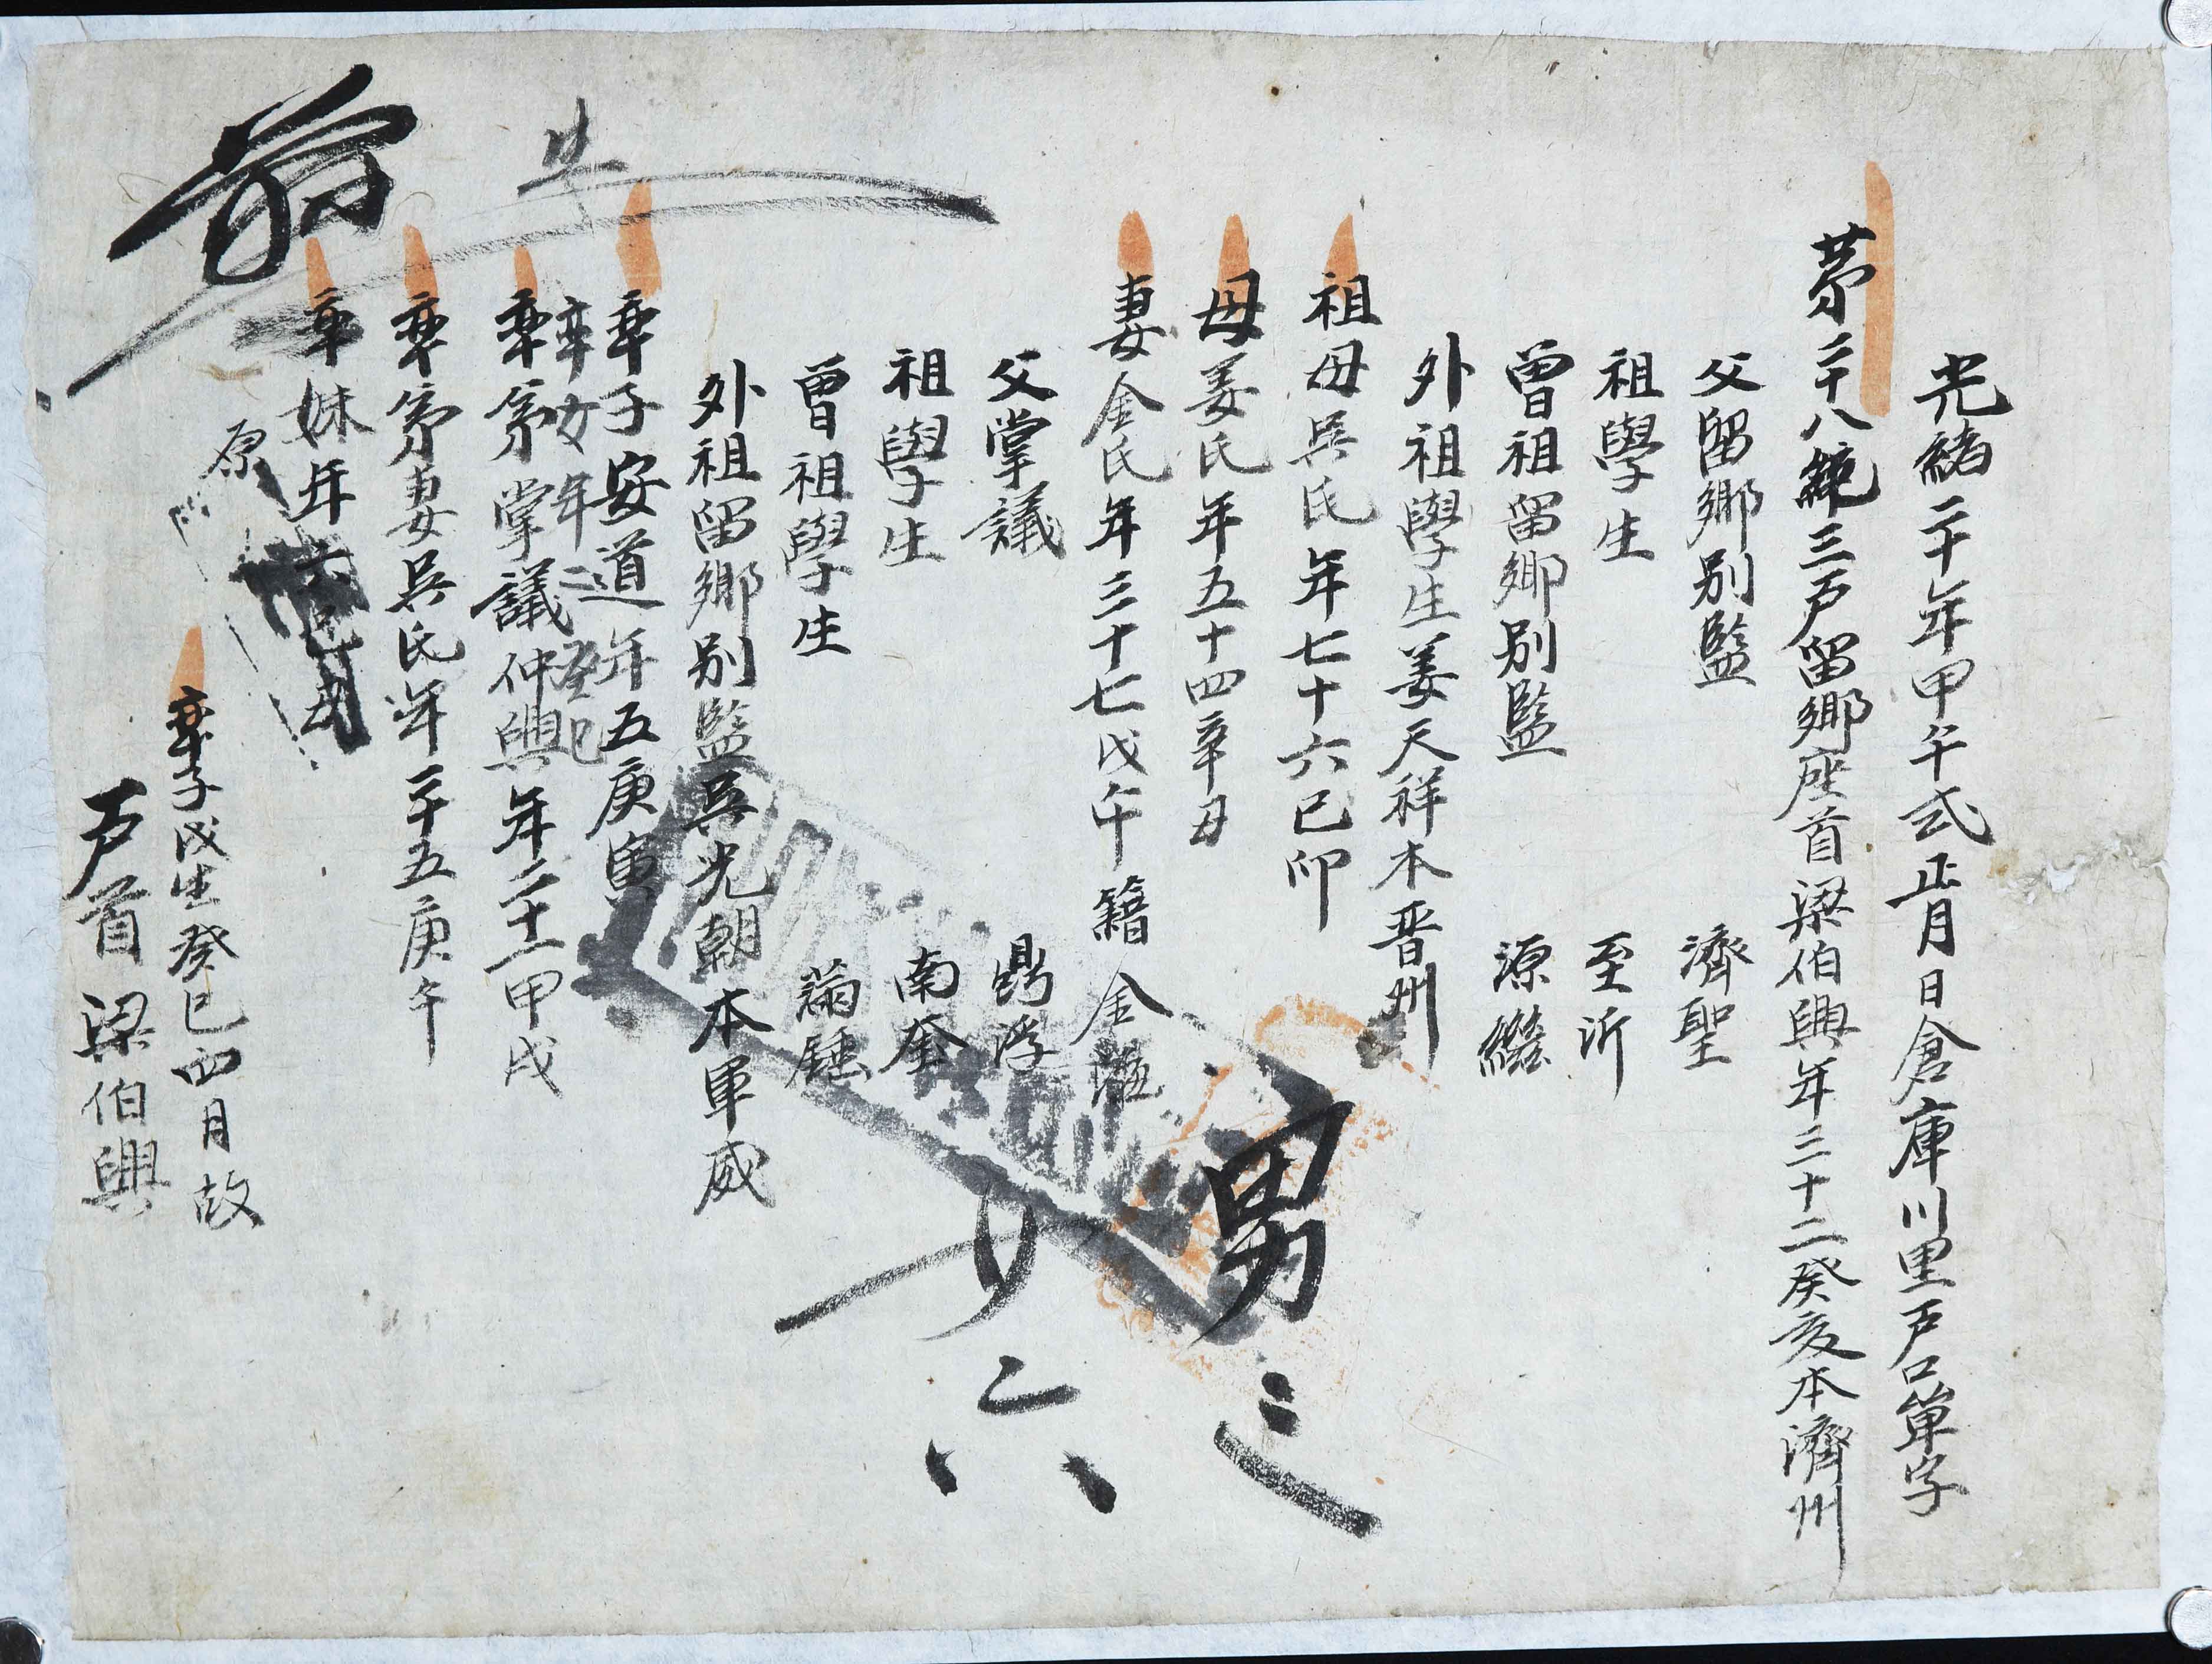 光緒二十年甲午式正月日倉庫川里戶口單字
第二十八統三戶留鄉座首梁伯興年三十二癸亥本濟州
父留鄉別監 濟聖
祖學生 至沂
曾祖留鄉別監 源繼
外祖學生姜天祥本晋州
祖母吳氏年七十六己卯
母姜氏年五十四辛丑
妻金氏年三十七戊午籍金海
父掌議
祖學生 南奎
曾祖學生
外祖留鄉別監吳光朝本軍威
率子安道年五庚寅
率女年二癸巳
率弟掌議仲興年二十一甲戌
率弟妻吳氏年二十五庚午
率妹年六己丑
原
率子戊生癸巳四月故
戶首梁伯興
男三
女六